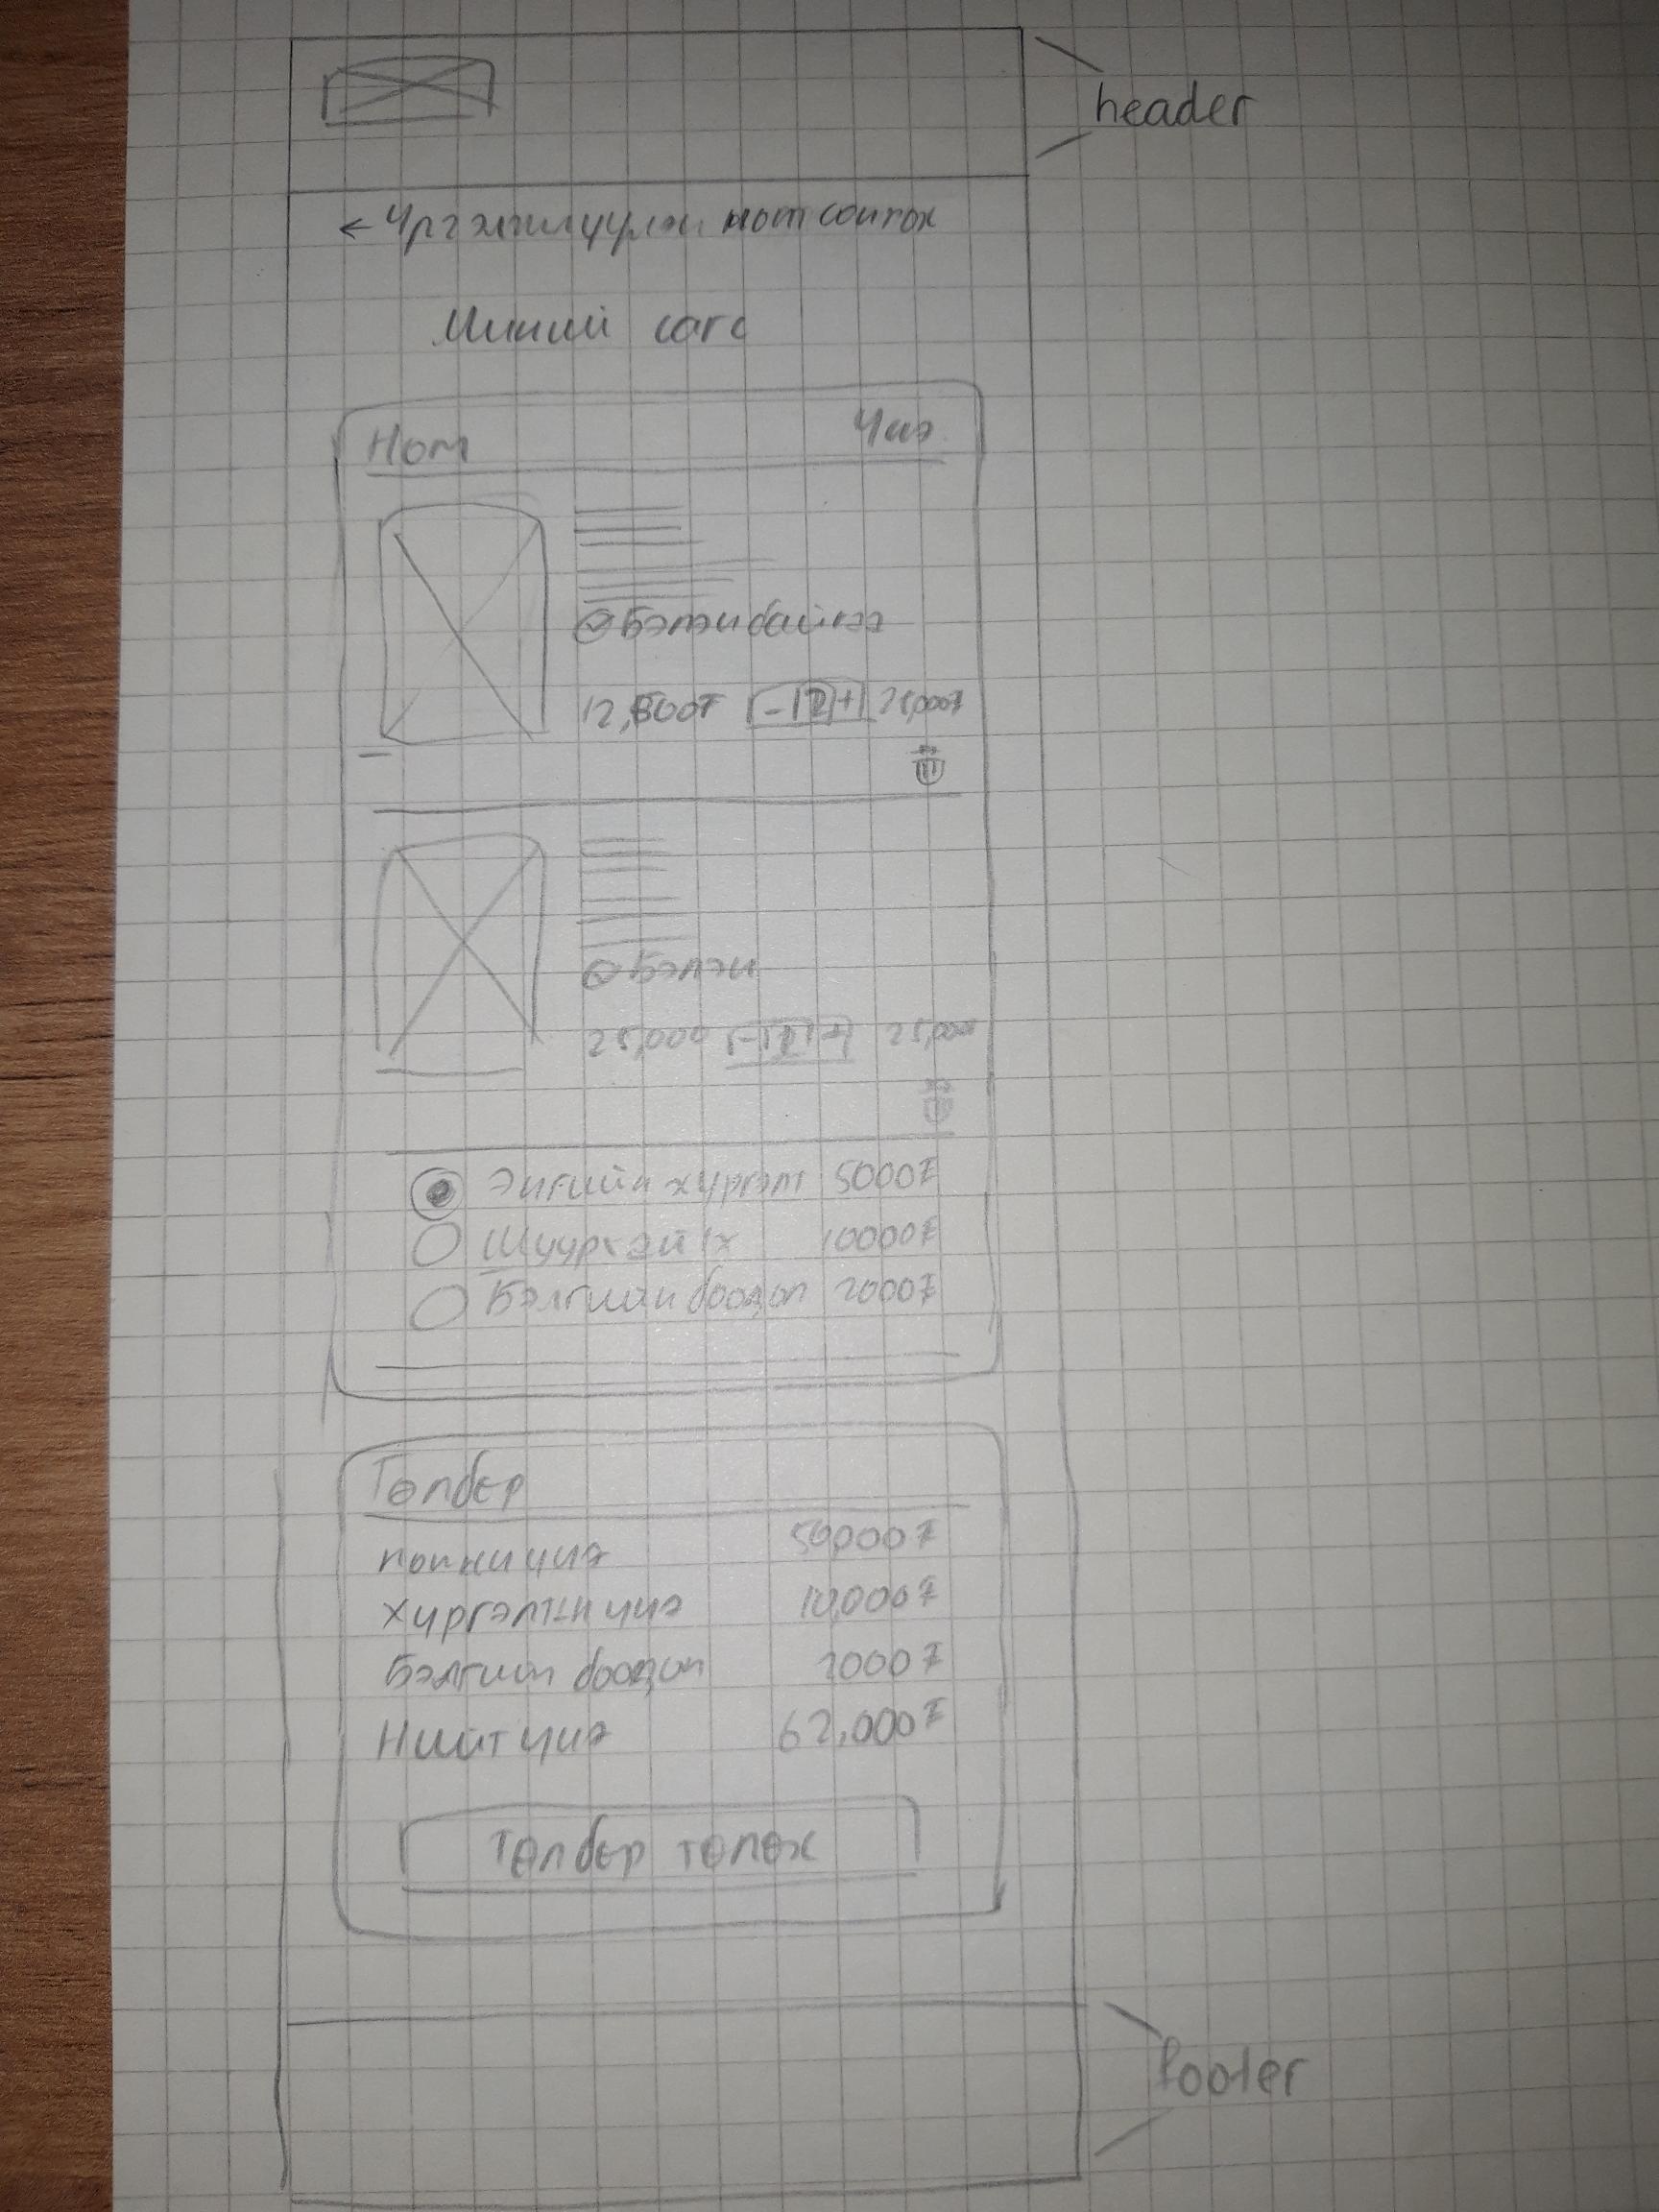 header
← Үргэлжлүүлэн ном сонгох
Миний сагс
Ном Үнэ
Бэлэн байгаа
12,500₮ - 2 + 25,000₮
Бэлэн
25,000 - 1 + 25,000
Энгийн хүргэлт 5000₮
Шуурхай 10000₮
Бэлгийн боодол 2000₮
Төлбөр
номны үнэ 50,000₮
Хүргэлтын үнэ 10,000₮
Бэлгийн боодол 2000₮
Нийт үнэ 62,000₮
Төлбөр төлөх
footer